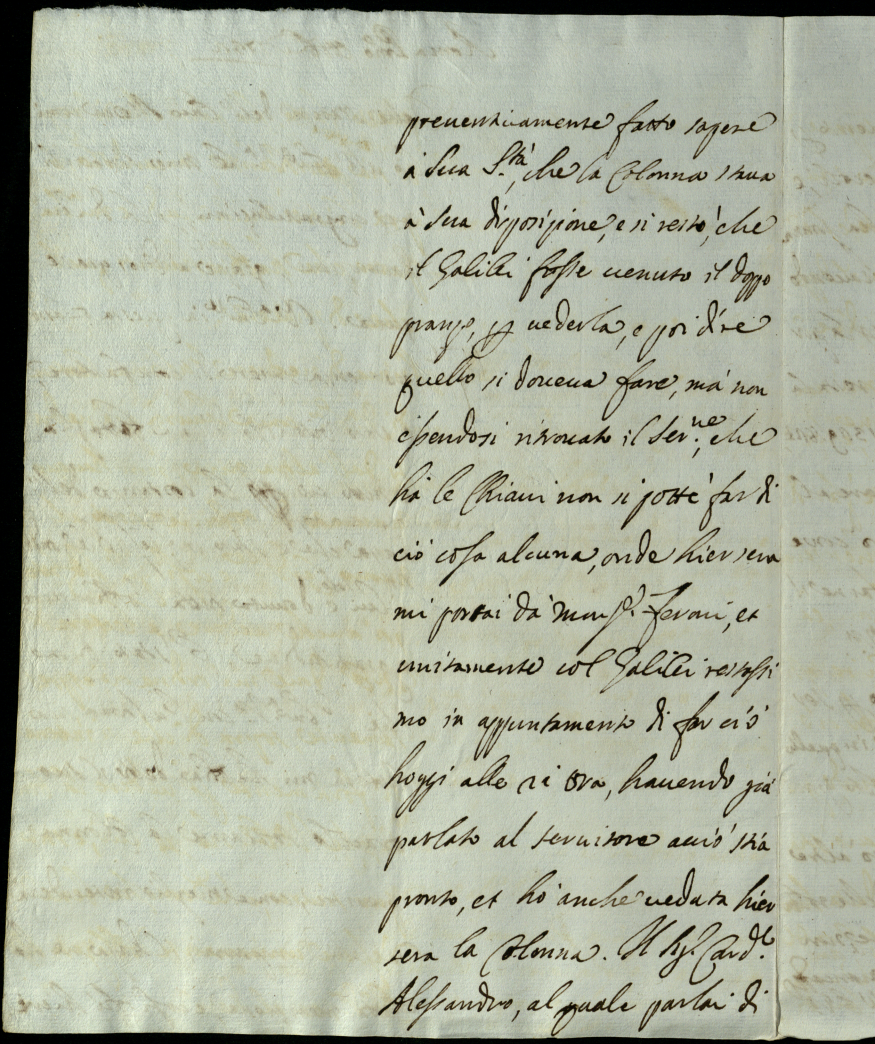 preventivamente fatto sapere
à Sua S.tà, che la Colonna stava
à sua disposizione, e si restò, che
il Galilei fosse venuto il doppo
pranzo, p vederla, e poi dire
quello si doveva fare, mà non
essendosi ritrovato il Ser.ne, che
hà le Chiavi non si potté far di
ciò cosa alcuna, onde hiersera
mi portai da Mons.r Ferroni, et
unitamente col Galilei restassi
mo in appuntamento di far ciò
hoggi alle 21 ora, havendo già
parlato al servitore acciò stia
pronto, et hò anche veduta hier
sera la Colonna. Il Sig.r Card.l
Alessandro, al quale parlai di